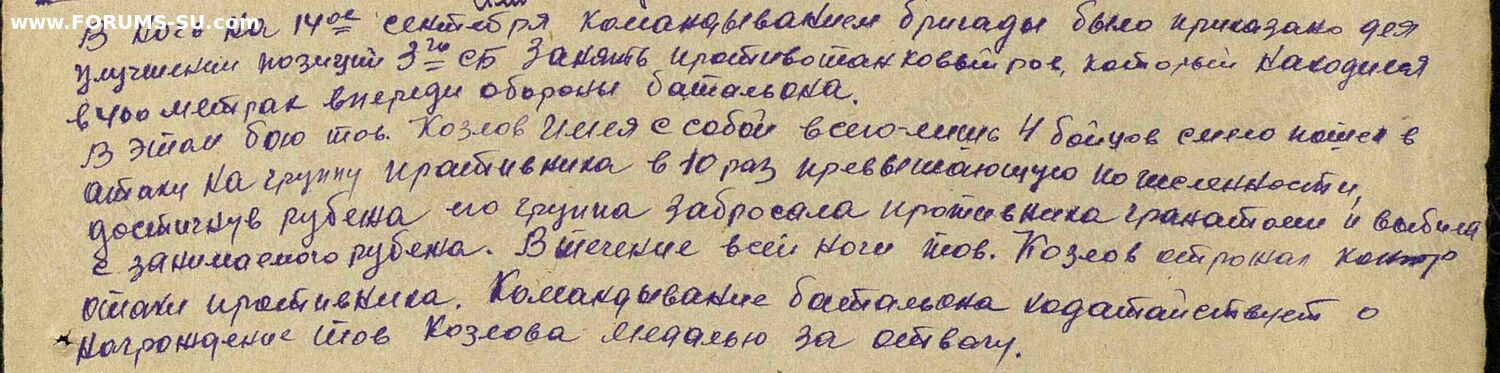 www.FORUMS-SU.com
В ночь на 14ое сентября командыванием бригады было приказано для
улучшении позиций 3го СБ Занять противотанковый ров, который находился
в 400 метрах впереди обороны батальона.
В этом бою тов. Козлов имея с собой всего-лишь 4 бойцов смело пошел в
атаку на группу противника в 10 раз превышающую по численности,
достигнув рубежа его группа забросала противника гранатоми и выбила
с занимаемого рубежа. В течение всей ночи тов. Козлов отрожал контр
отаки противника. Командывание батальона ходатайствует о
награждение тов Козлова медалью за отвагу.